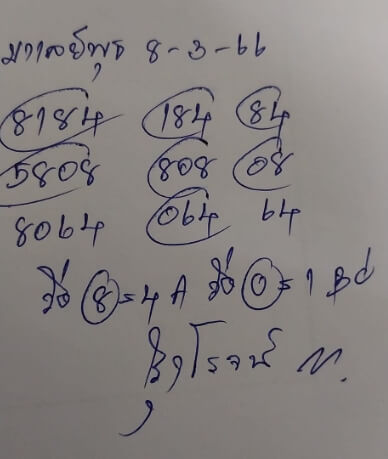 มาเลย์พุธ 8-3-66
8184 184 84
5808 808 08
8064 064 64
วิ่ง 8=4 A วิ่ง 0=1 Bd
โรจน์ N.